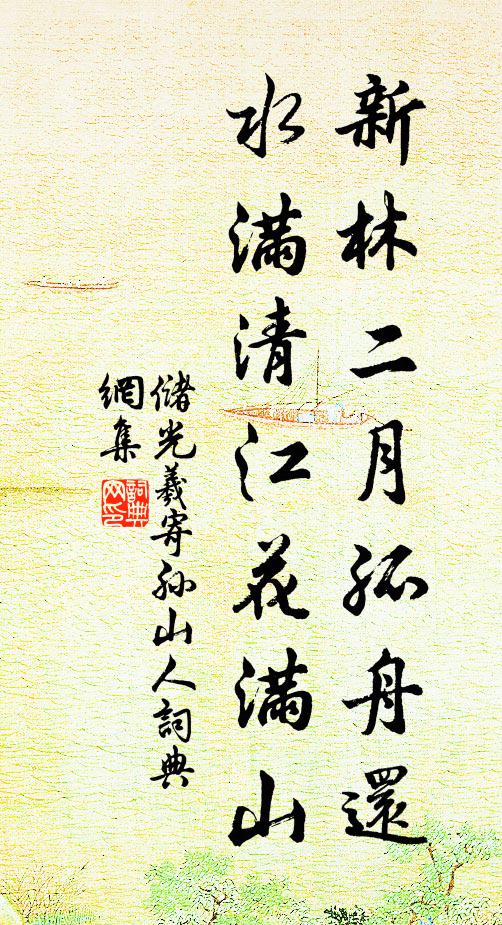 新林二月孤舟還
水滿清江花滿山
儲光羲寄孙山人詞典
網集
詞典网印